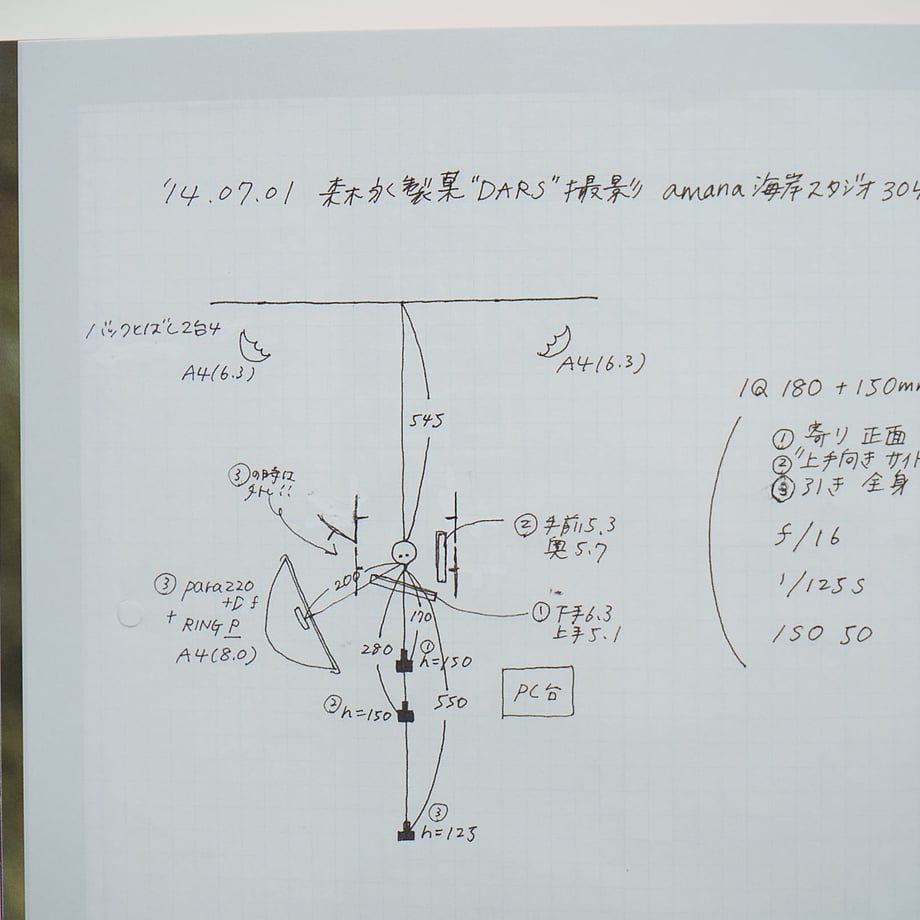 '14.07.01 森永製菓"DARS"撮影 amana海岸スタジオ304
バックとばし2台4
A4(6.3)
A4(6.3)
545
IQ 180 + 150mm
① 寄り 正面
② 〃上手向き サイド
③ 引き 全身
f/16
1/125s
ISO 50
③の時は
外し!!
② 手前5.3
奥5.7
200
③ para220
+Df
+ RING P
A4(8.0)
① 下手6.3
上手5.1
170
280
① h=150
550
PC台
② h=150
③
h=125